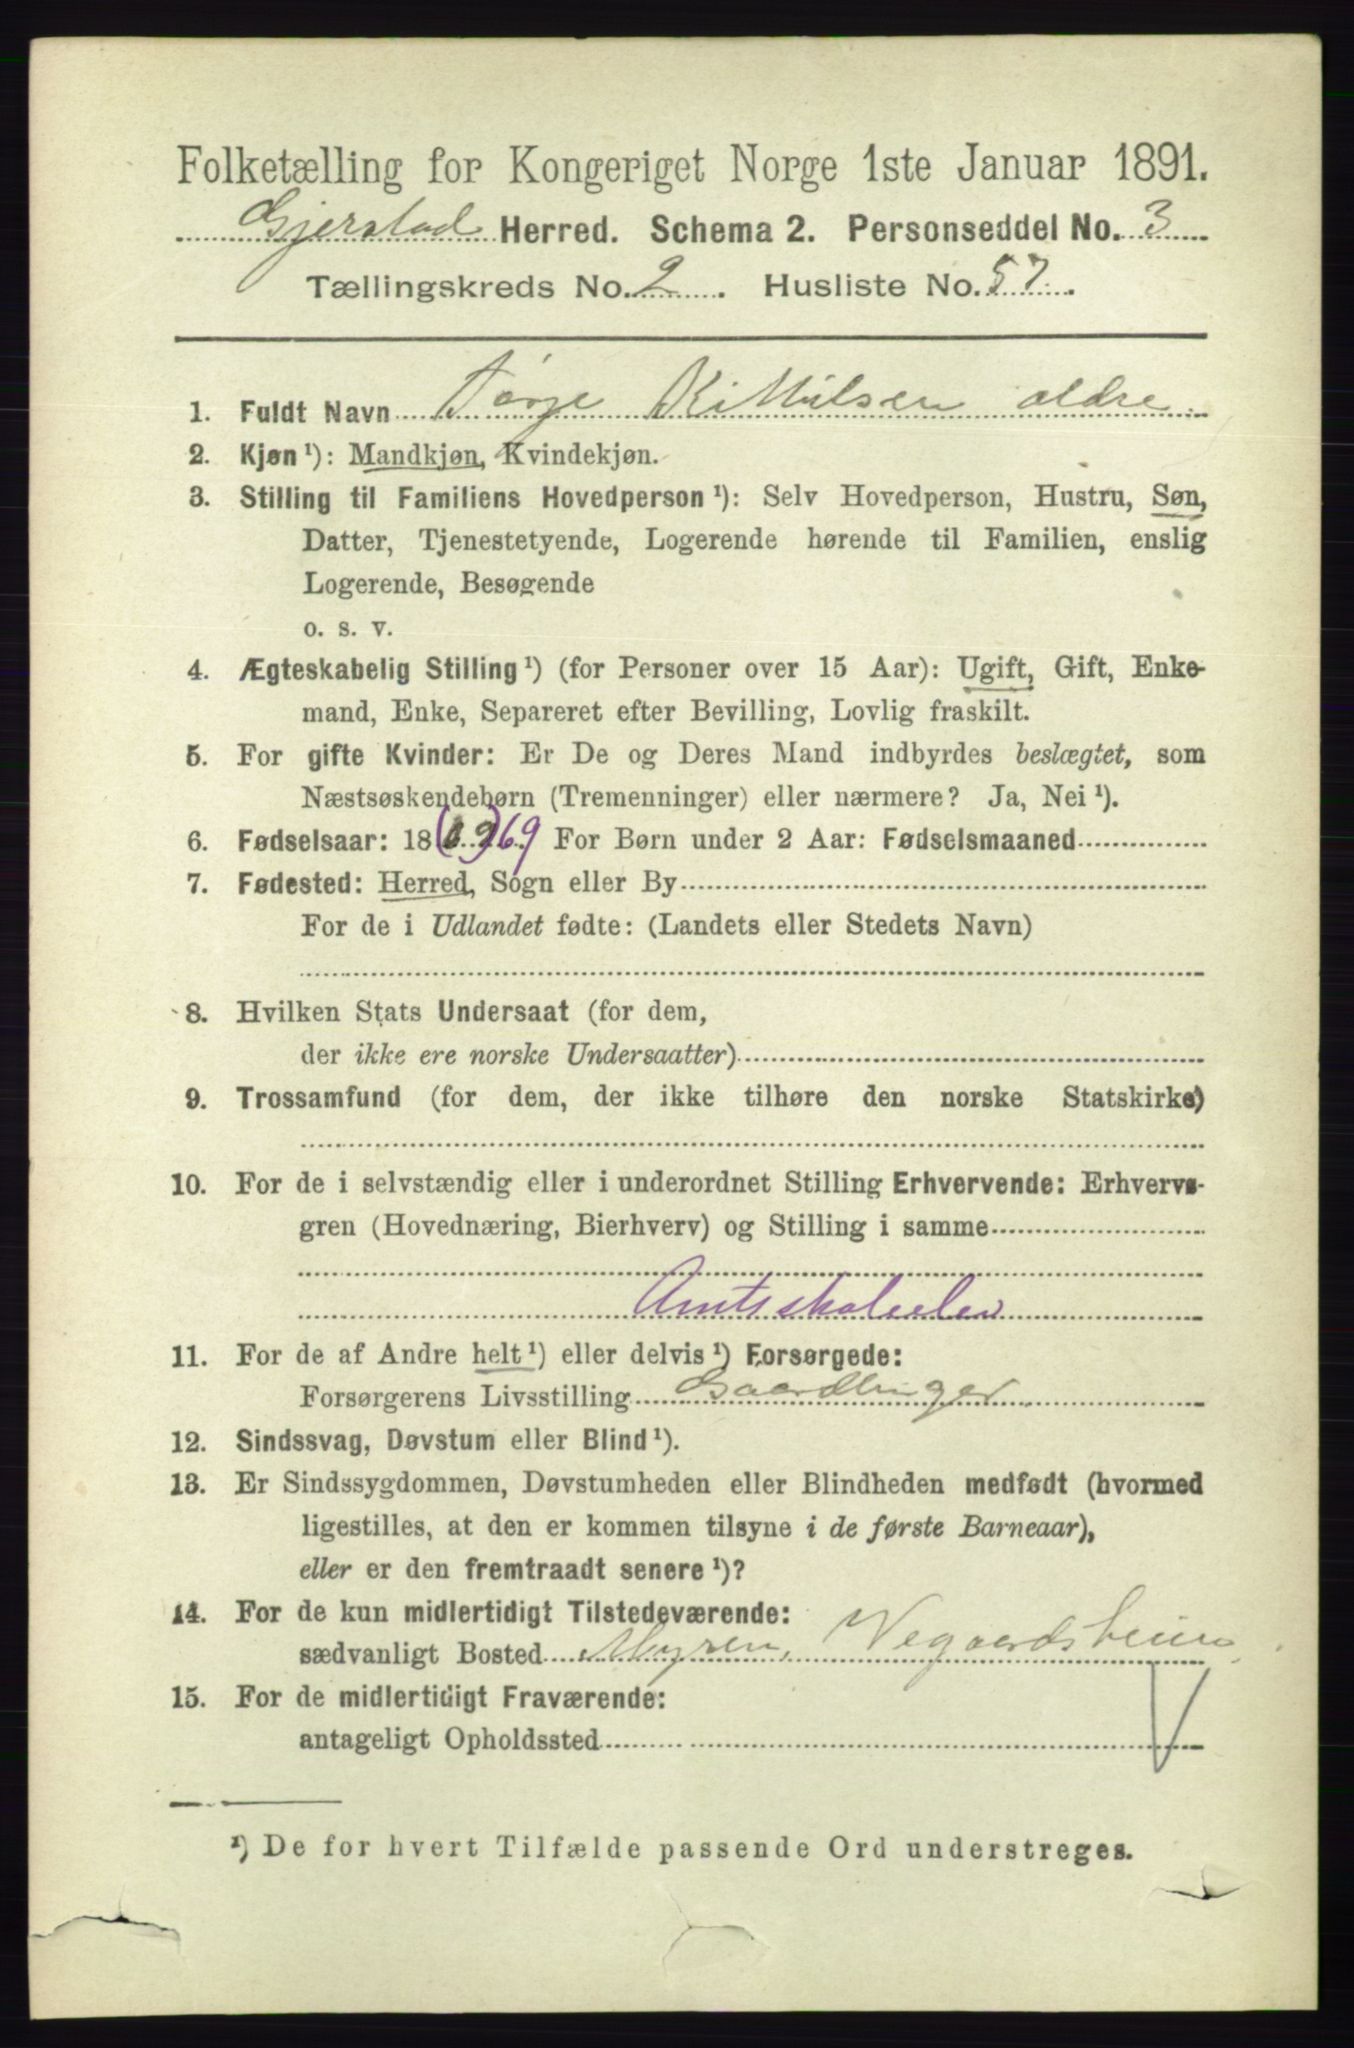 Folketælling for Kongeriget Norge 1ste Januar 1891.
Gjerstad Herred. Schema 2. Personseddel No. 3
Tællingskreds No. 2. Husliste No. 57.
1. Fuldt Navn Torje Kittilsen ældre
2. Kjøn ¹): Mandkjøn, Kvindekjøn.
3. Stilling til Familiens Hovedperson ¹): Selv Hovedperson, Hustru, Søn,
Datter, Tjenestetyende, Logerende hørende til Familien, enslig
Logerende, Besøgende
o. s. v.
4. Ægteskabelig Stilling ¹) (for Personer over 15 Aar): Ugift, Gift, Enke-
mand, Enke, Separeret efter Bevilling, Lovlig fraskilt.
5. For gifte Kvinder: Er De og Deres Mand indbyrdes beslægtet, som
Næstsøskendebørn (Tremenninger) eller nærmere? Ja, Nei ¹).
6. Fødselsaar: 18 69 For Børn under 2 Aar: Fødselsmaaned
7. Fødested: Herred, Sogn eller By
For de i Udlandet fødte: (Landets eller Stedets Navn)
8. Hvilken Stats Undersaat (for dem,
der ikke ere norske Undersaatter)
9. Trossamfund (for dem, der ikke tilhøre den norske Statskirke)
10. For de i selvstændig eller i underordnet Stilling Erhvervende: Erhvervs-
gren (Hovednæring, Bierhverv) og Stilling i samme
Amtsskoleelev
11. For de af Andre helt ¹) eller delvis ¹) Forsørgede:
Forsørgerens Livsstilling Gaardbruger
12. Sindssvag, Døvstum eller Blind ¹).
13. Er Sindssygdommen, Døvstumheden eller Blindheden medfødt (hvormed
ligestilles, at den er kommen tilsyne i de første Barneaar),
eller er den fremtraadt senere ¹)?
14. For de kun midlertidigt Tilstedeværende:
sædvanligt Bosted Myren, Vegaardsheien
15. For de midlertidigt Fraværende:
antageligt Opholdssted
¹) De for hvert Tilfælde passende Ord understreges.